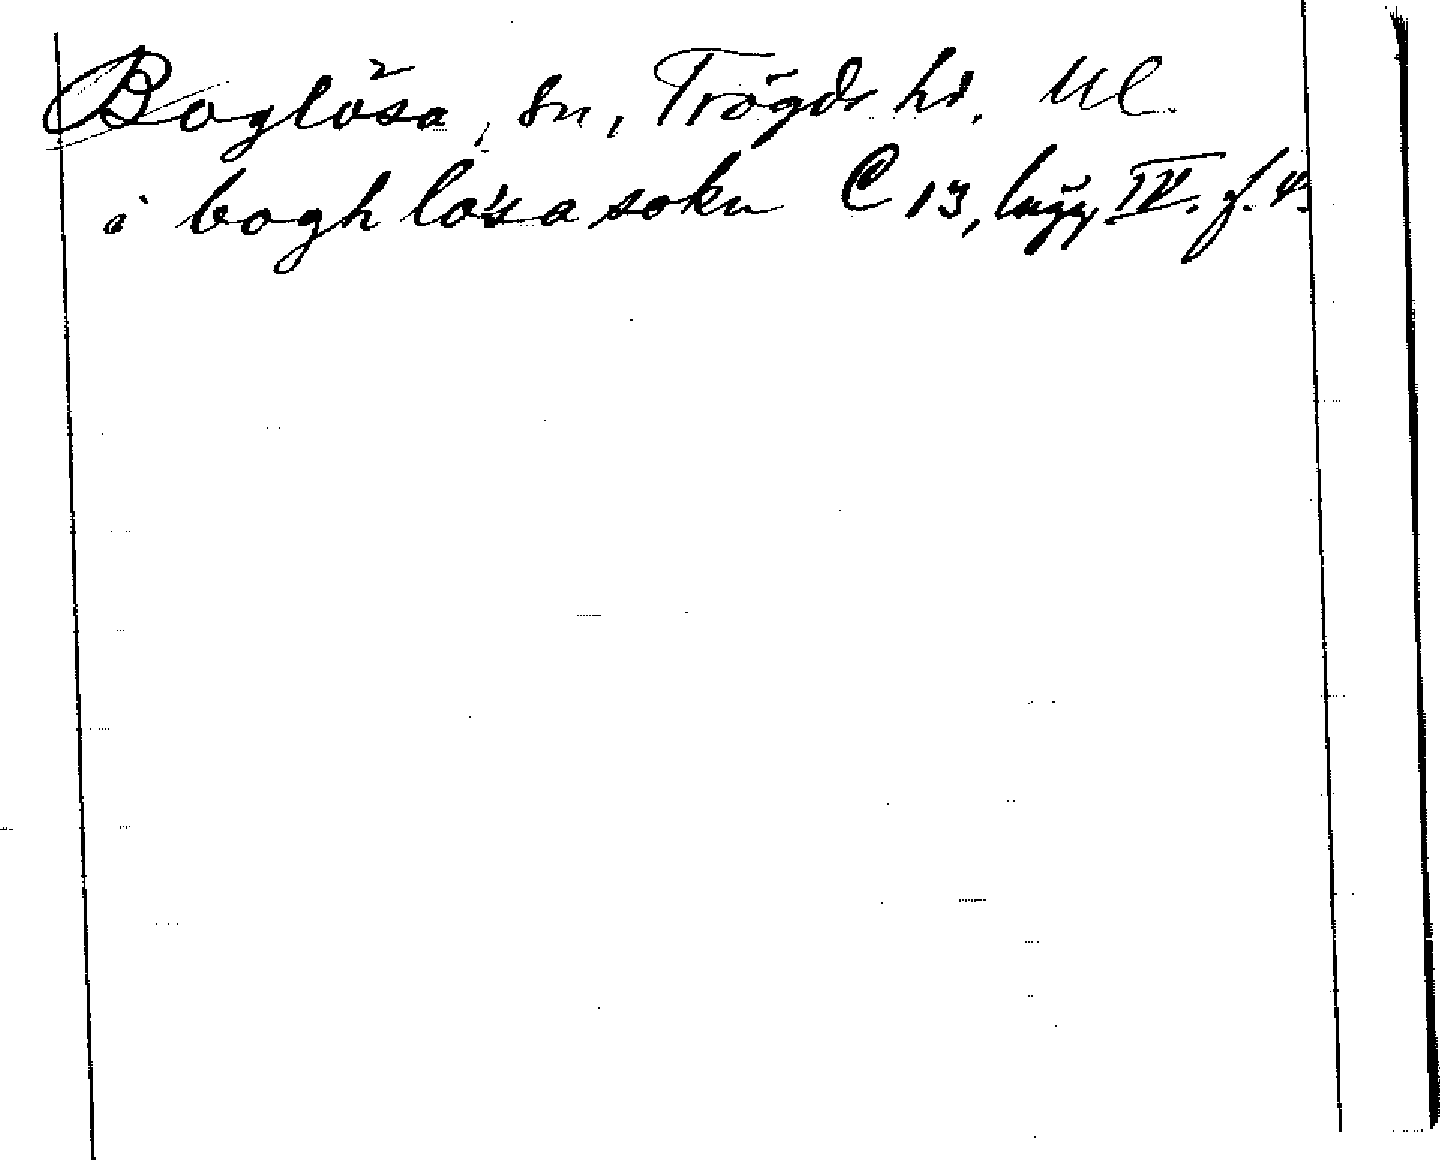 Boglösa, sn, Trögds hd. Ul.
i boghlösa sokn C 13, IV. f. 4.